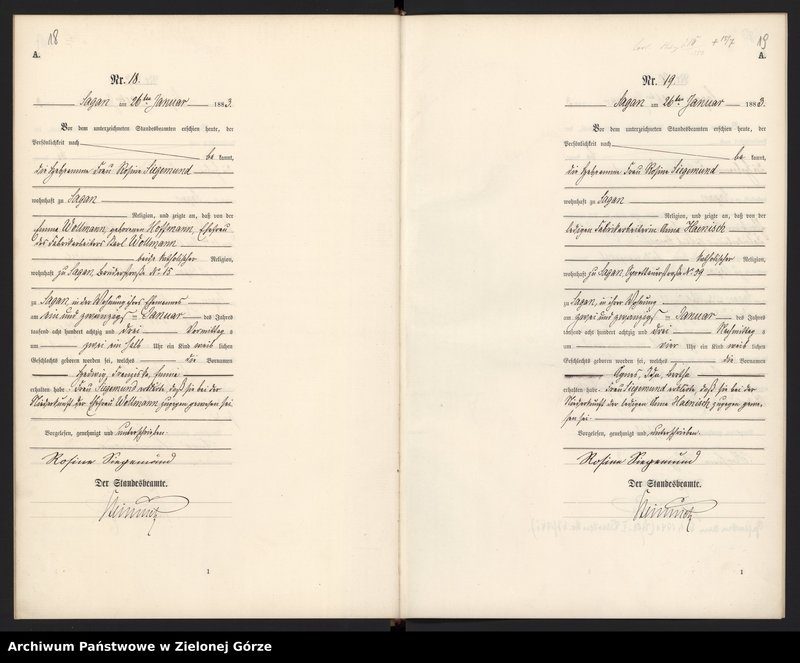 18
A.
Nr. 18.
Sagan am 26ten Januar 1883.
Vor dem unterzeichneten Standesbeamten erschien heute, der
Persönlichkeit nach
be kannt,
die Hebeamme Frau Rosine Siegemund
wohnhaft zu Sagan
Religion, und zeigte an, daß von der
Emma Wollmann, geborenen Hoffmann, Ehefrau
des Fabrikarbeiters Karl Wollmann
beide katholischer Religion,
wohnhaft zu Sagan, No 15
zu Sagan, in der Wohnung ihres Ehemannes
am ein und zwanzigsten Januar des Jahres
tausend acht hundert achtzig und drei Vormittag s
um zwei ein halb Uhr ein Kind weib lichen
Geschlechts geboren worden sei, welches die Vornamen
Hedwig, Franziska, Emma
erhalten habe. Frau Siegemund erklärte, daß sie bei der
Niederkunft der Ehefrau Wollmann zugegen gewesen sei.
Vorgelesen, genehmigt und unterschrieben
Rosine Siegemund
Der Standesbeamte.
1
19
A.
Nr. 19
Sagan am 26ten Januar 1883.
Vor dem unterzeichneten Standesbeamten erschien heute, der
Persönlichkeit nach
be kannt,
die Hebeamme Frau Rosine Siegemund
wohnhaft zu Sagan
Religion, und zeigte an, daß von der
ledigen Fabrikarbeiterin Anna Haenisch
katholischer Religion,
wohnhaft zu Sagan, No 39
zu Sagan, in ihrer Wohnung
am zwei und zwanzigsten Januar des Jahres
tausend acht hundert achtzig und drei Nachmittag s
um vier Uhr ein Kind weib lichen
Geschlechts geboren worden sei, welches die Vornamen
Agnes, Ida, Bertha
erhalten habe. Frau Siegemund erklärte, daß sie bei der
Niederkunft der ledigen Anna Haenisch zugegen gewe-
sen sei
Vorgelesen, genehmigt und unterschrieben.
Rosine Siegemund
Der Standesbeamte.
1
Archiwum Państwowe w Zielonej Górze